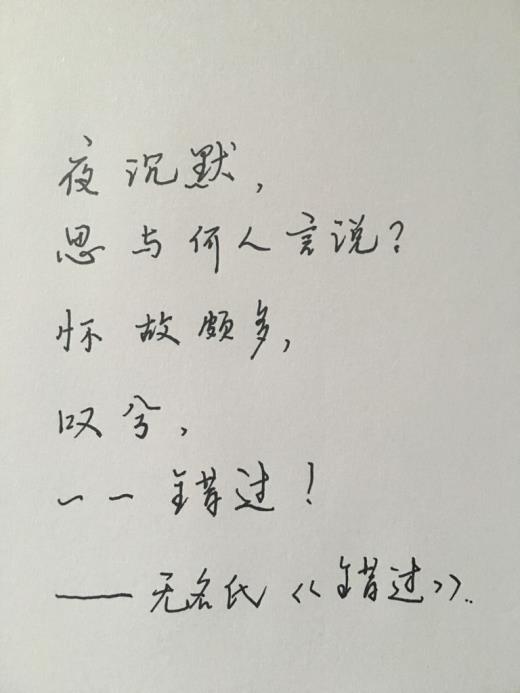 夜沉默，
思与何人言说？
怀故颇多，
叹兮，
一一错过！
——无名氏《错过》..